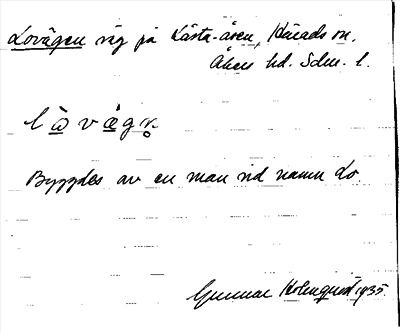 Lovägen väg på Kärsta-åsen, Härads sn.
Åkers hd. Sdm. l.
l ò v ä g n.
Byggdes av en man vid namn Lo
Gunnar Holmquist 1935